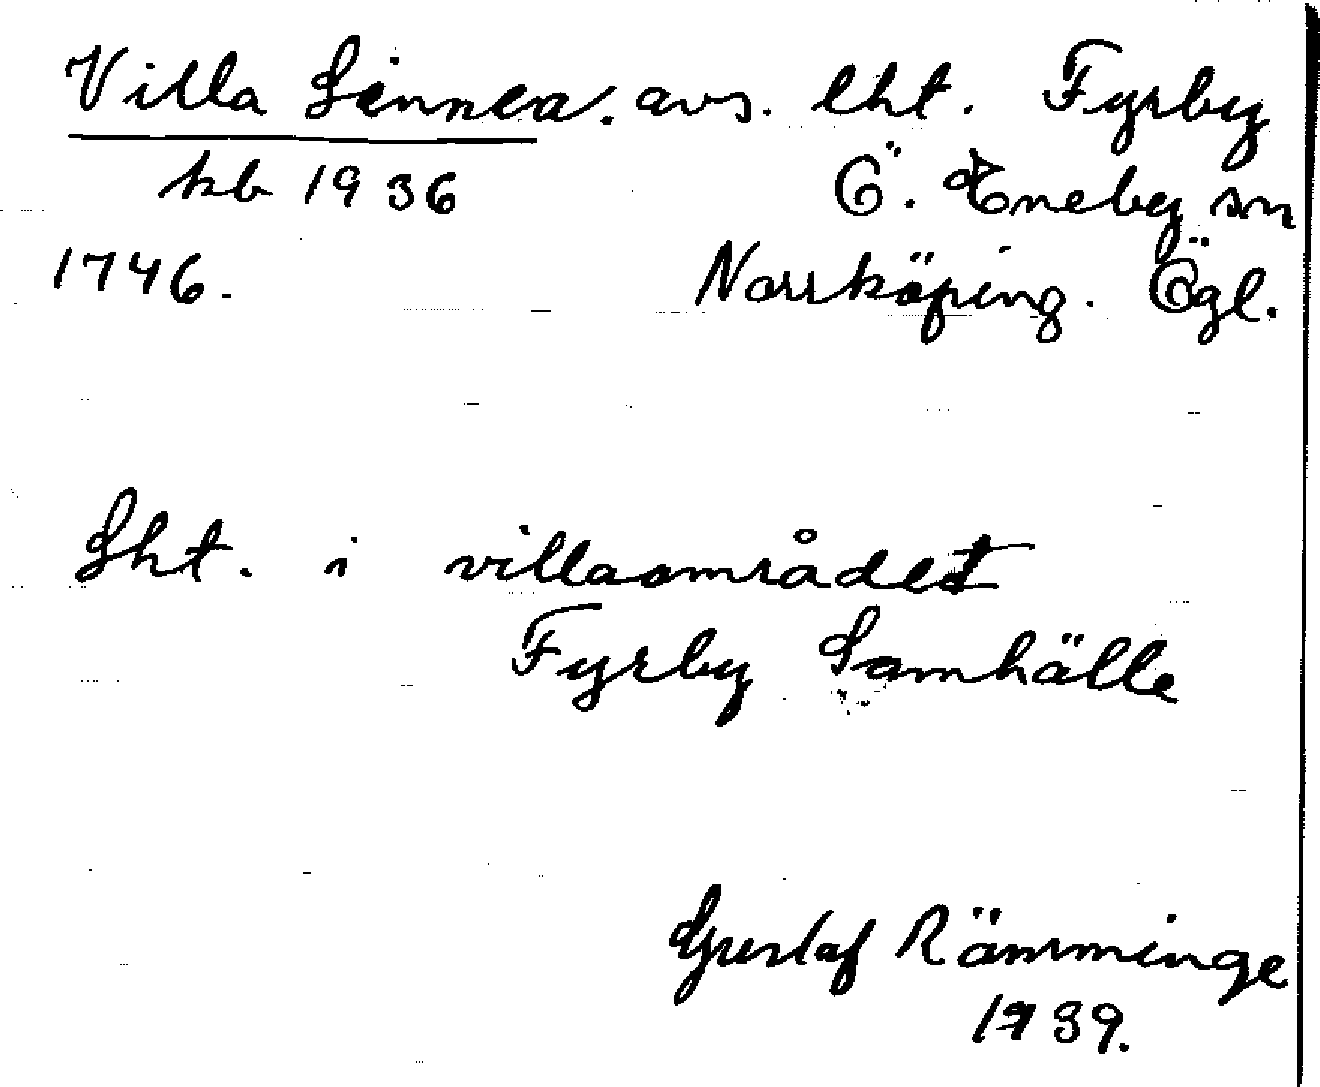 Villa Linnea. avs. lht. Fyrby
kb 1936 Ö. Eneby sn
1746. Norrköping. Ögl.
Lht. i villaområdet
Fyrby Samhälle
Gustaf Rämminge
1939.